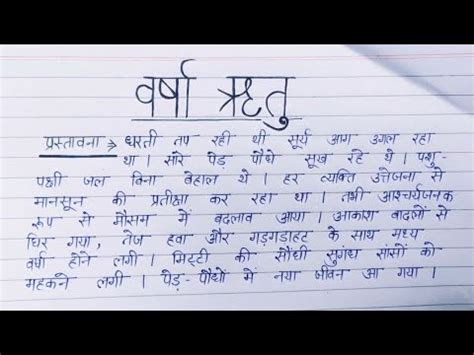 वर्षा ऋतु
प्रस्तावना → धरती तप रही थी सूर्य आग उगल रहा
था । सारे पेड़ पौधे सूख रहे थे । पशु-
पक्षी जल बिना बेहाल थे । हर व्यक्ति उत्तेजना से
मानसून की प्रतीक्षा कर रहा था । तभी आश्चर्यजनक
रूप से मौसम में बदलाव आया । आकाश बादलों से
घिर गया, तेज हवा और गड़गड़ाहट के साथ मध्य
वर्षा होने लगी । मिट्टी की सौंधी सुगंध सांसों को
महकने लगी । पेड़-पौधों में नया जीवन आ गया ।